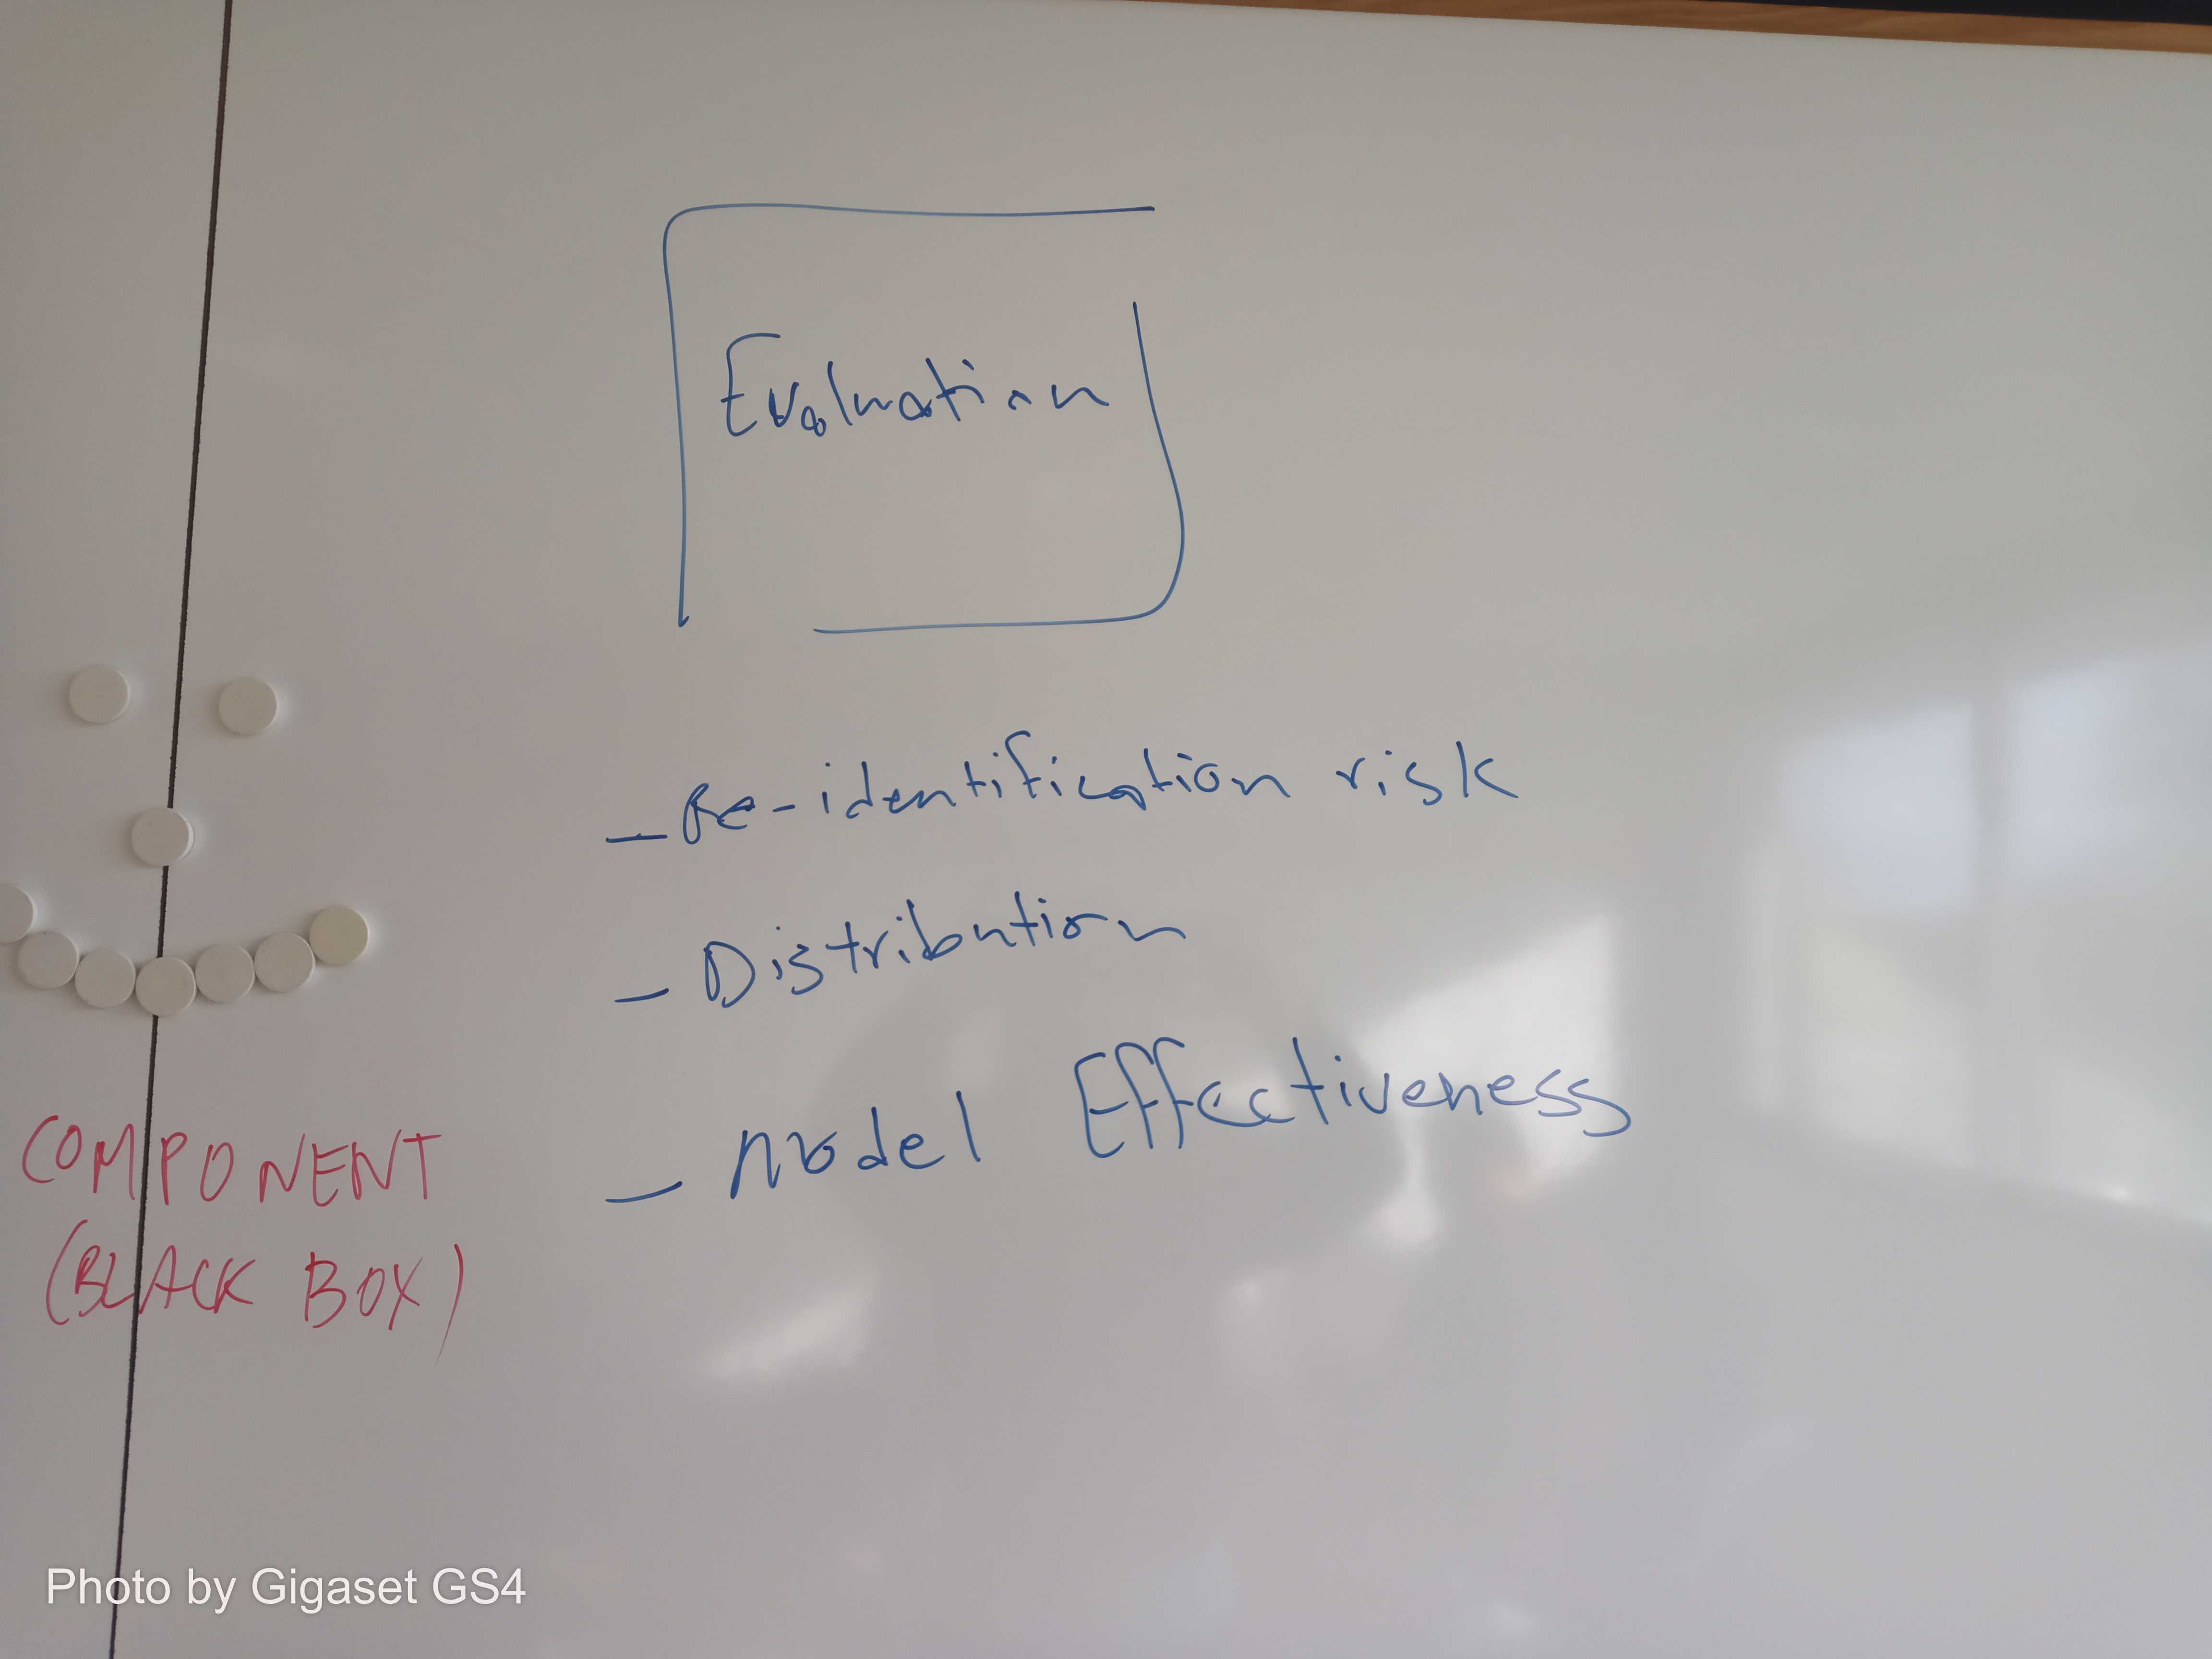 Evaluation
- Re-identification risk
- Distribution
- Model Effectiveness
COMPONENT
(BLACK BOX)
Photo by Gigaset GS4